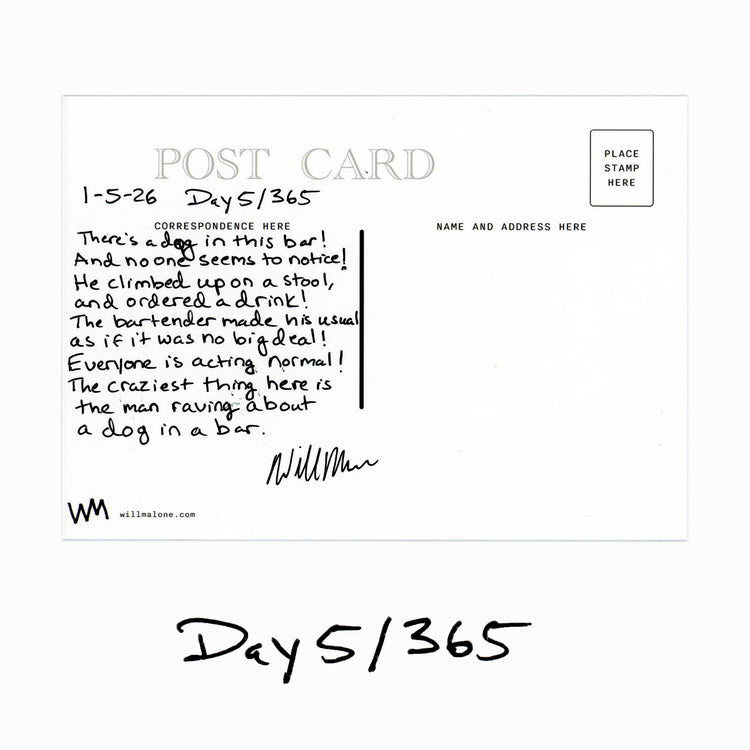 POST CARD
1-5-26 Day 5/365
CORRESPONDENCE HERE
There's a dog in this bar!
And no one seems to notice!
He climbed up on a stool,
and ordered a drink!
The bartender made his usual
as if it was no big deal!
Everyone is acting normal!
The craziest thing here is
the man raving about
a dog in a bar.
WM willmalone.com
PLACE
STAMP
HERE
NAME AND ADDRESS HERE
Day 5/365